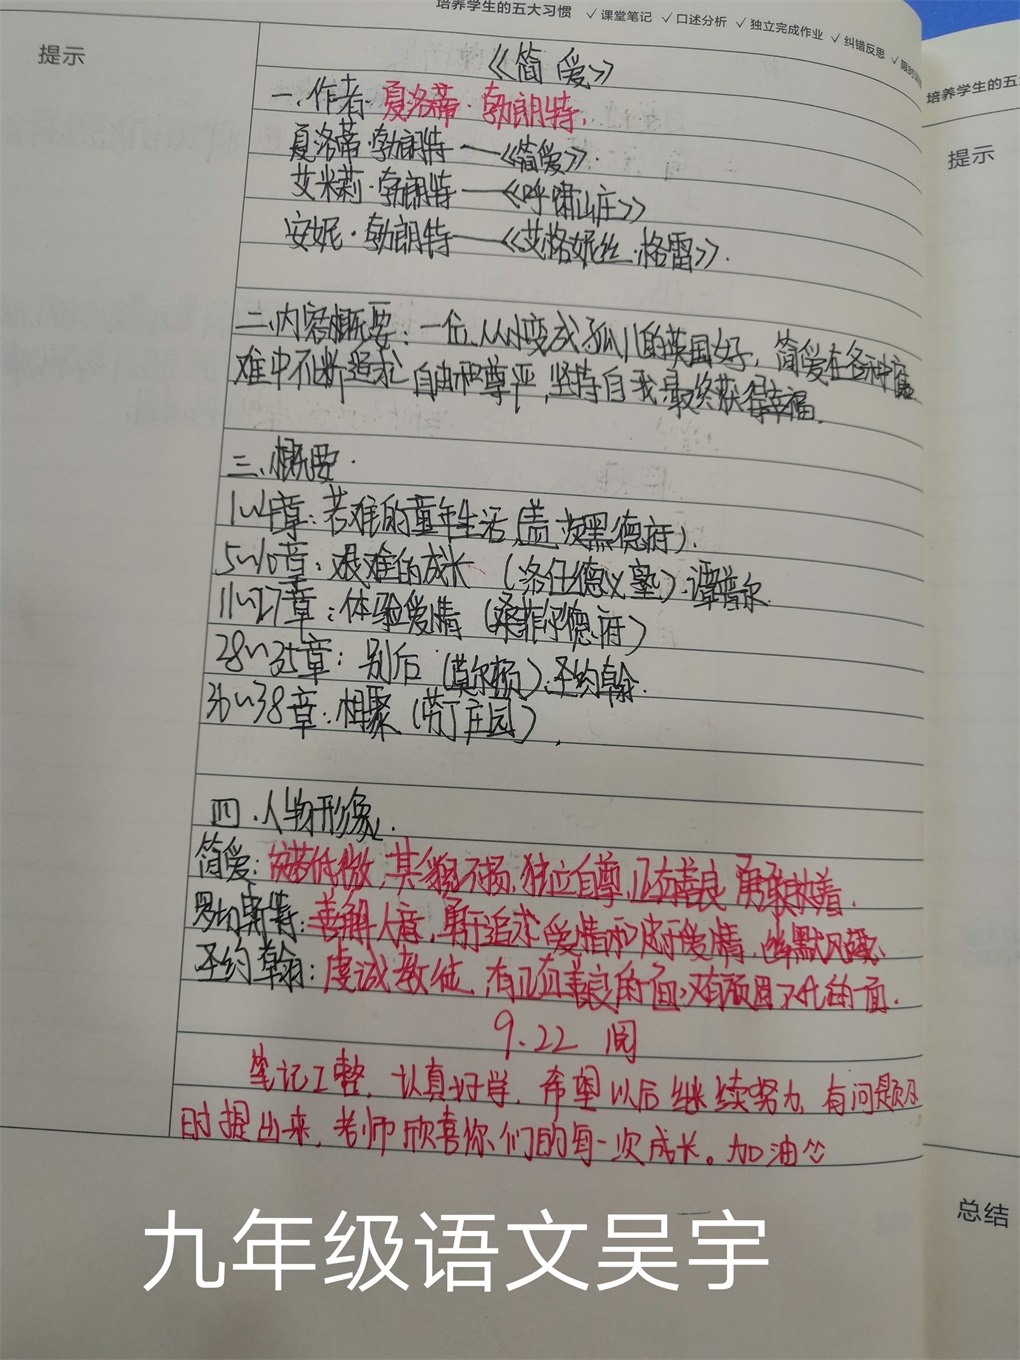 培养学生的五大习惯 √课堂笔记 √口述分析 √独立完成作业 √纠错反思
提示
《简爱》
一.作者.夏洛蒂·勃朗特.
夏洛蒂·勃朗特——《简爱》.
艾米莉·勃朗特——《呼啸山庄》
安妮·勃朗特——《艾格妮丝·格雷》.
二.内容概要:一位从小变成孤儿的英国女子,简爱在各种磨
难中不断追求自由和尊严,坚持自我,最终获得幸福.
三、概要.
1~4章:苦难的童年生活(盖茨黑德府).
5~10章:艰难的成长 (洛伍德义塾).谭普尔
11~27章:体验爱情(桑菲尔德府)
28~35章:别后(莫尔顿).圣约翰.
36~38章:相聚(芬丁庄园).
四.人物形象.
简爱:低微,其貌不扬,独立自尊,正直善良 勇敢执着.
罗切斯特:善解人意,勇于追求爱情和忠于爱情,幽默风趣
圣约翰:虔诚教徒.有正直善良的一面
9.22 阅
笔记工整,认真好学,希望以后继续努力,有问题及
时提出来,老师欣喜你们的每一次成长。加油
培养学生的五
提示
总结
九年级语文吴宇